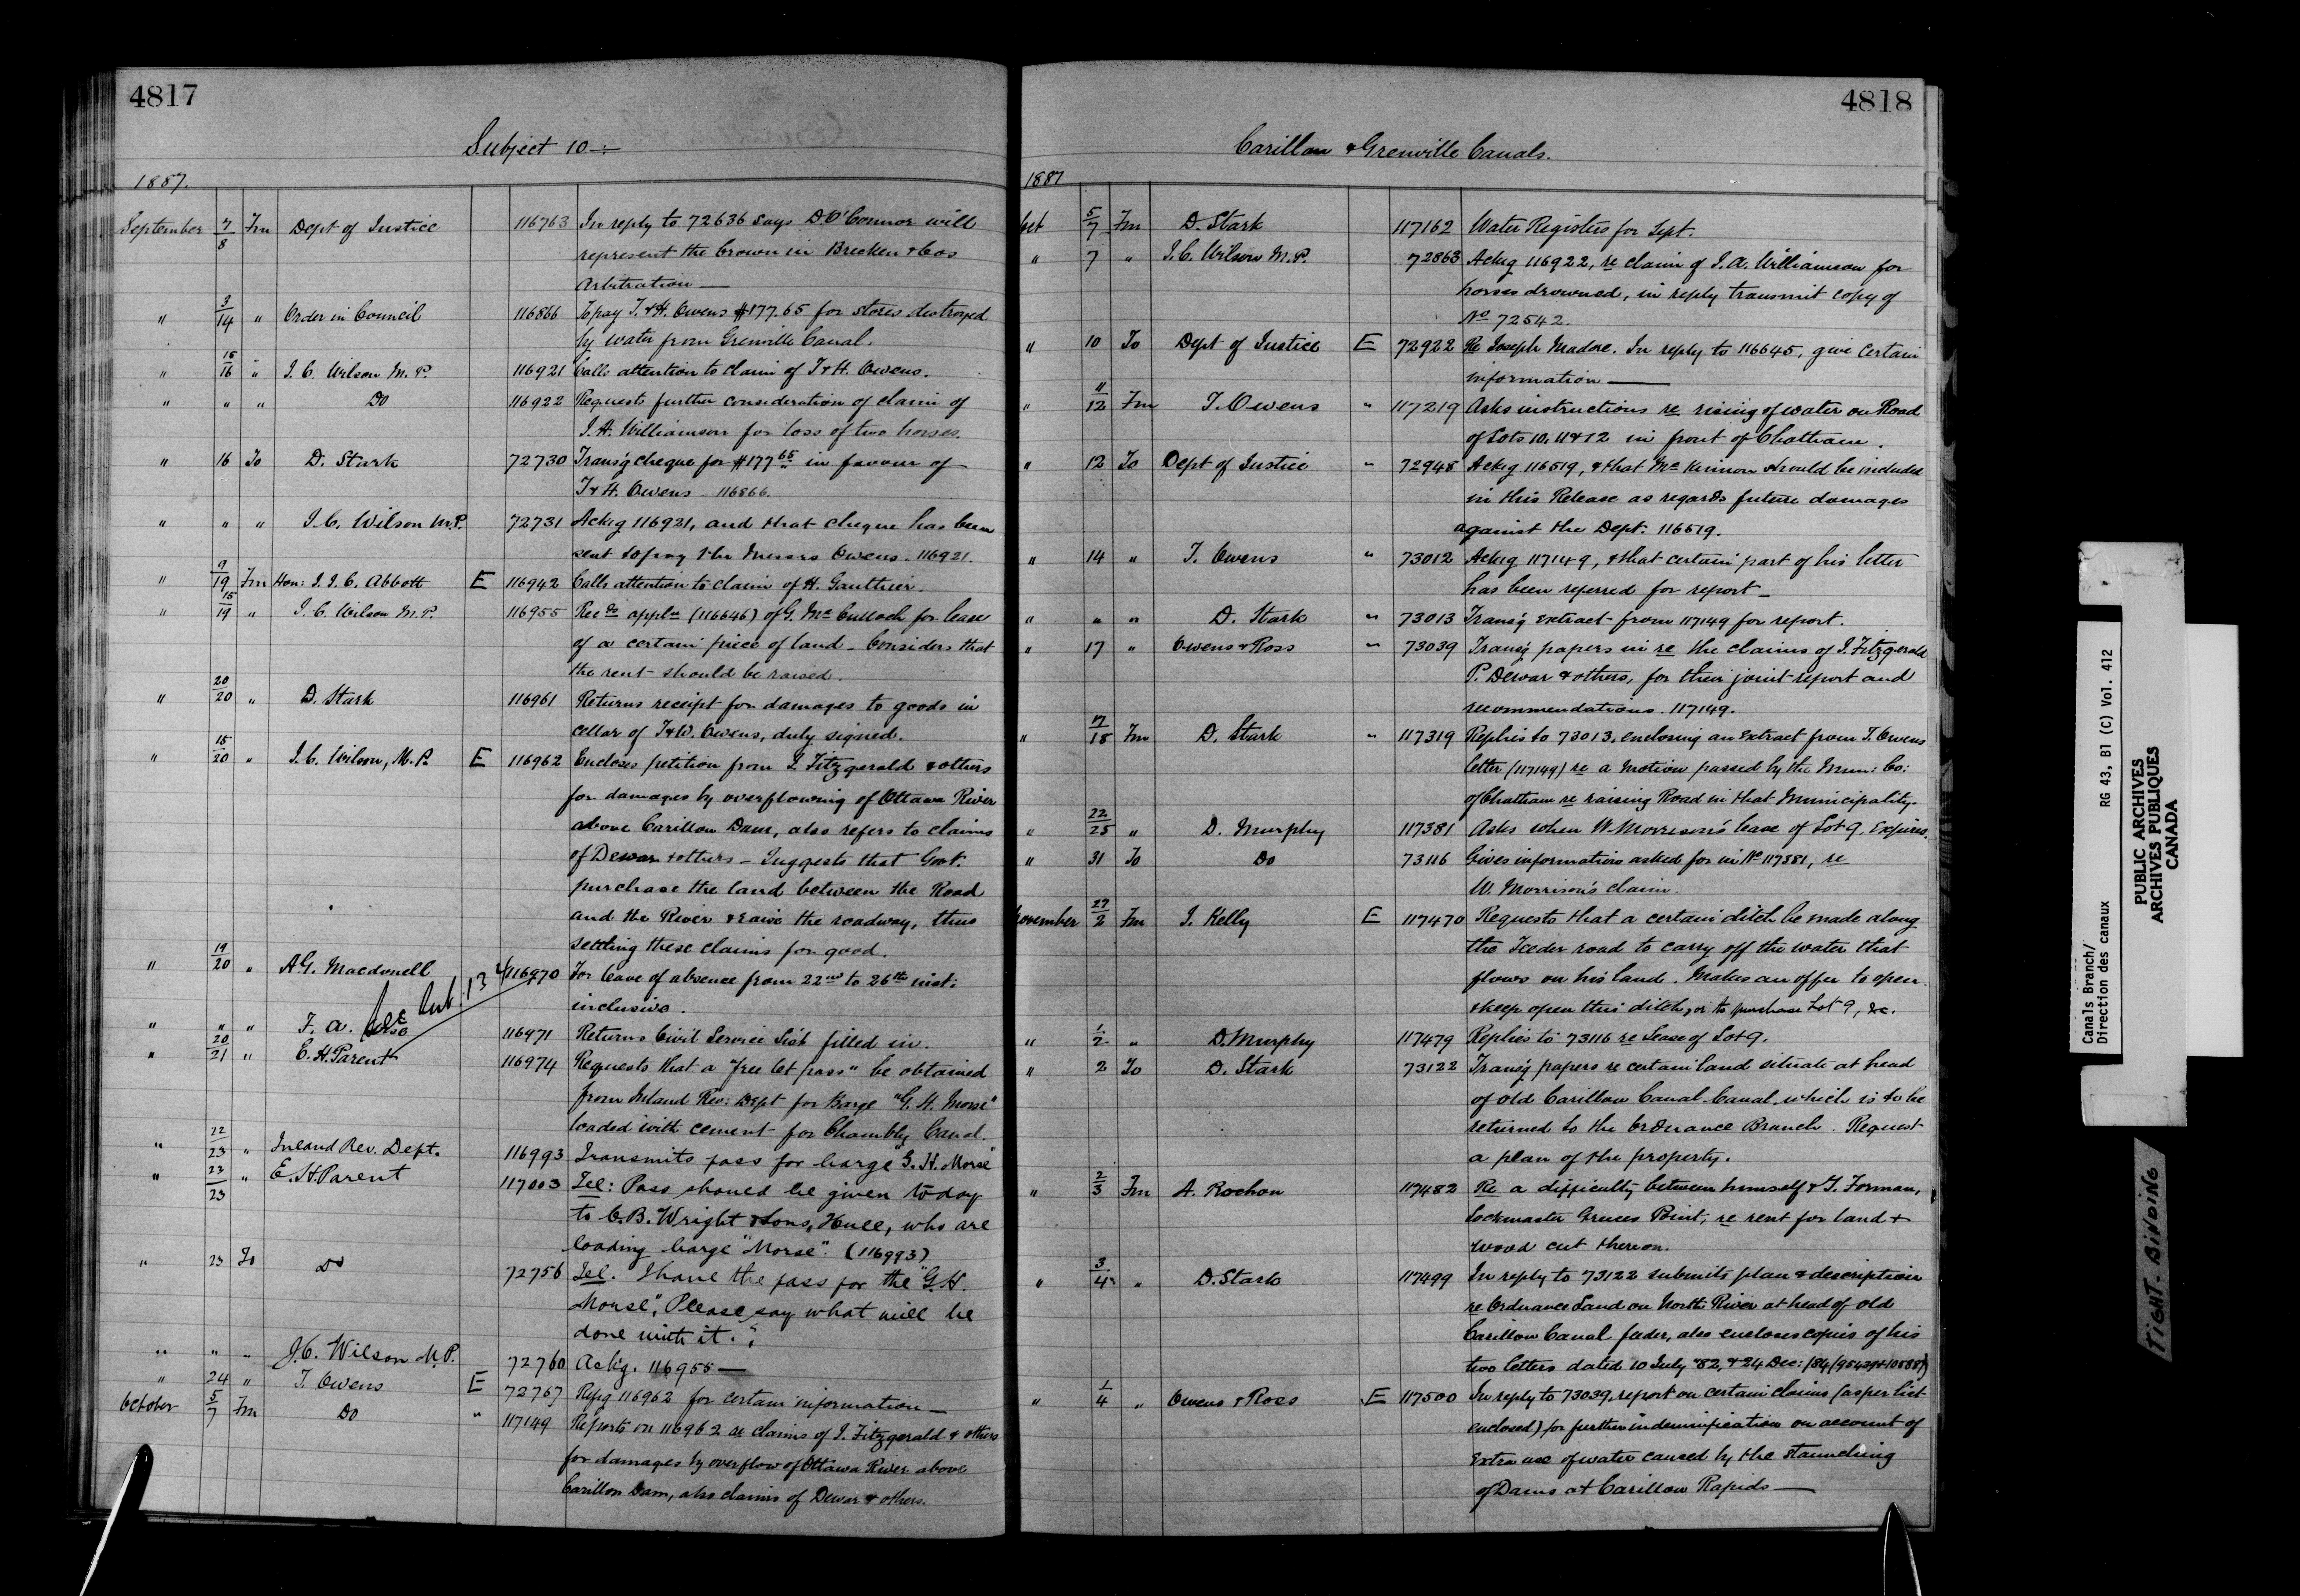 4817
Subject 10 —
1887.
September 7/8 Fm Dept of Justice 116763 In reply to 72636 says D. O'Connor will
represent the Crown in Brecken & Cos
Arbitration —
" 3/14 " Order in Council 116866 To pay T. & H. Owens $177.65 for stores destroyed
by water from Grenville Canal.
" 15/16 " J. C. Wilson M.P. 116921 Calls attention to claim of T & H. Owens.
" " " Do 116922 Requests further consideration of claim of
J. A. Williamson for loss of two horses.
" 16 To D. Stark 72730 Trans'g cheque for $177 65 in favour of
T & H. Owens 116866.
" " " J. C. Wilson M.P. 72731 Ack'g 116921, and that cheque has been
sent to pay the Messrs Owens. 116921.
" 9/19 Fm Hon: J. J. C. Abbott E 116942 Calls attention to claim of H. Gauthier.
" 15/19 " J. C. Wilson M.P. 116955 Recds appln (116646) of G. McCulloch for lease
of a certain piece of land — Considers that
the rent should be raised.
" 20/20 " D. Stark 116961 Returns receipt for damages to goods in
cellar of T & W. Owens, duly signed.
" 15/20 " J. C. Wilson, M.P. E 116962 Encloses petition from J. Fitzgerald & others
for damages by overflowing of Ottawa River
above Carillon Dam, also refers to claims
of Dewar & others — Suggests that Govt.
purchase the land between the Road
and the River & raise the roadway, thus
settling these claims for good.
" 19/20 " A G. Macdonell 116970 For leave of absence from 22nd to 26th inst:
inclusive.
See Sub. 134
" " " F. A. 116971 Returns Civil Service List filled in.
" 20/21 " E. H. Parent 116974 Requests that a "free let pass" be obtained
from Inland Rev: Dept for Barge "G. H. Morse"
loaded with cement for Chambly Canal.
" 22/23 " Inland Rev. Dept. 116993 Transmits pass for barge "G. H. Morse"
" 23/23 " E. H. Parent 117003 Tel: Pass should be given to day
to C. B. Wright & Sons, Hull, who are
loading barge "Morse". (116993)
" 23 To Do 72756 Tel. I have the pass for the "G. H.
Morse", Please say what will be
done with it.
" " " J. C. Wilson M.P. 72760 Ack'g. 116955 —
" 24 " T. Owens E 72767 Ref'g 116962 for certain information —
October 5/7 Fm Do " 117149 Reports on 116962 re claims of J. Fitzgerald & others
for damages by overflow of Ottawa River above
Carillon Dam, also claims of Dewar & others.
4818
Carillon & Grenville Canals.
1887
Oct 5/7 Fm D. Stark 117162 Water Registers for Sept.
" 7 " J. C. Wilson M.P. 72863 Ack'g 116922, re claim of J. A. Williamson for
horses drowned, in reply transmit copy of
No 72542.
" 10 To Dept of Justice E 72922 Re Joseph Madore. In reply to 116645, give certain
information —
" 11/12 Fm T. Owens " 117219 Asks instructions re rising of water on Road
of Lots 10, 11 & 12 in front of Chatham.
" 12 To Dept of Justice " 72948 Ack'g 116519, & that McKinnon should be included
in this Release as regards future damages
against the Dept. 116519.
" 14 " T. Owens " 73012 Ack'g 117149, & that certain part of his letter
has been referred for report —
" " " D. Stark " 73013 Trans'g extract from 117149 for report.
" 17 " Owens & Ross " 73039 Trans'g papers in re the claims of J. Fitzgerald
P. Dewar & others, for their joint report and
recommendations. 117149.
" 17/18 Fm D. Stark " 117319 Replies to 73013, enclosing an extract from T. Owens
letter (117149) re a motion passed by the Mun: Co:
of Chatham re raising Road in that Municipality.
" 22/25 " D. Murphy 117381 Asks when W. Morrison's lease of Lot 9, expires.
" 31 To Do 73116 Gives information asked for in No 117381, re
W. Morrison's claim.
November 29/2 Fm J. Kelly E 117470 Requests that a certain ditch be made along
the Feeder road to carry off the water that
flows on his land. Makes an offer to open
& keep open this ditch, or to purchase Lot 9, &c.
" 1/2 " D. Murphy 117479 Replies to 73116 re Lease of Lot 9.
" 2 To D. Stark 73122 Trans'g papers re certain land situate at head
of old Carillon Canal Canal which is to be
returned to the Ordnance Branch. Request
a plan of the property.
" 2/3 Fm A. Rochon 117482 Re a difficulty between himself & G. Forman,
Lockmaster Greeces Point, re rent for land &
wood cut thereon.
" 3/4 " D. Stark 117499 In reply to 73122 submits plan & description
re Ordnance Land on North River at head of old
Carillon Canal feeder, also encloses copies of his
two letters dated 10 July '82, & 24 Dec: /84
" 1/4 " Owens & Ross E 117500 In reply to 73039, report on certain claims (as per list
enclosed) for further indemnification on account of
Extra use of water caused by the staunching
of Dams at Carillon Rapids —
Canals Branch/
Direction des canaux RG 43, B1 (C) Vol. 412
PUBLIC ARCHIVES
ARCHIVES PUBLIQUES
CANADA
TIGHT BINDING